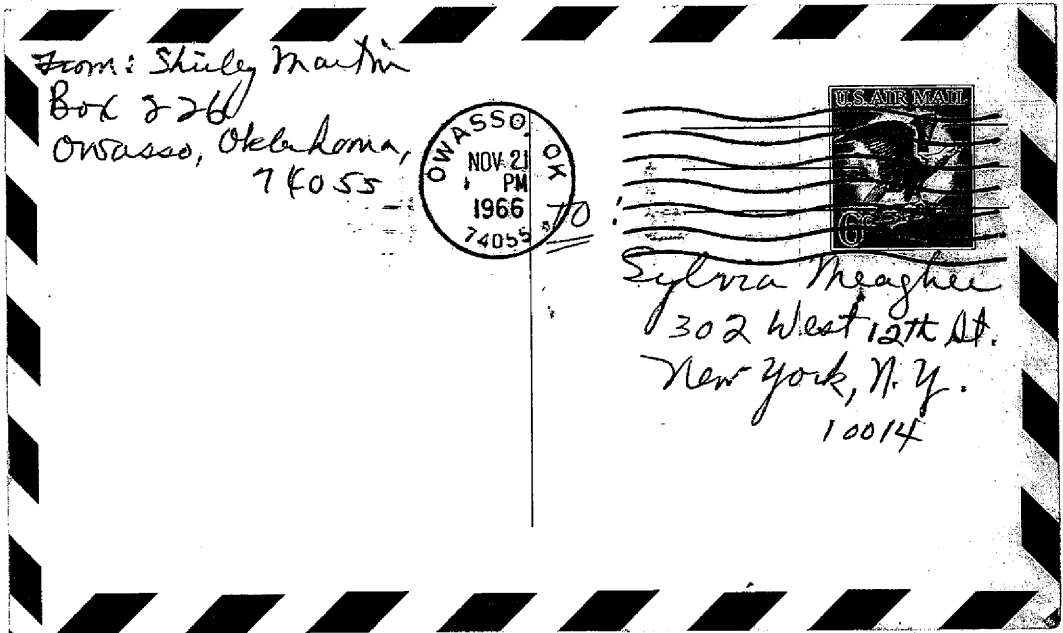 From: Shirley Martin
Box 226
Owasso, Oklahoma,
74055
OWASSO, OK
NOV 21
PM
1966
74055
TO:
U.S. AIR MAIL
6¢
Sylvia Meagher
302 West 12th St.
New York, N.Y.
10014